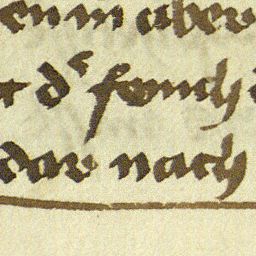 en in aber
t dͤ fench
dar nach